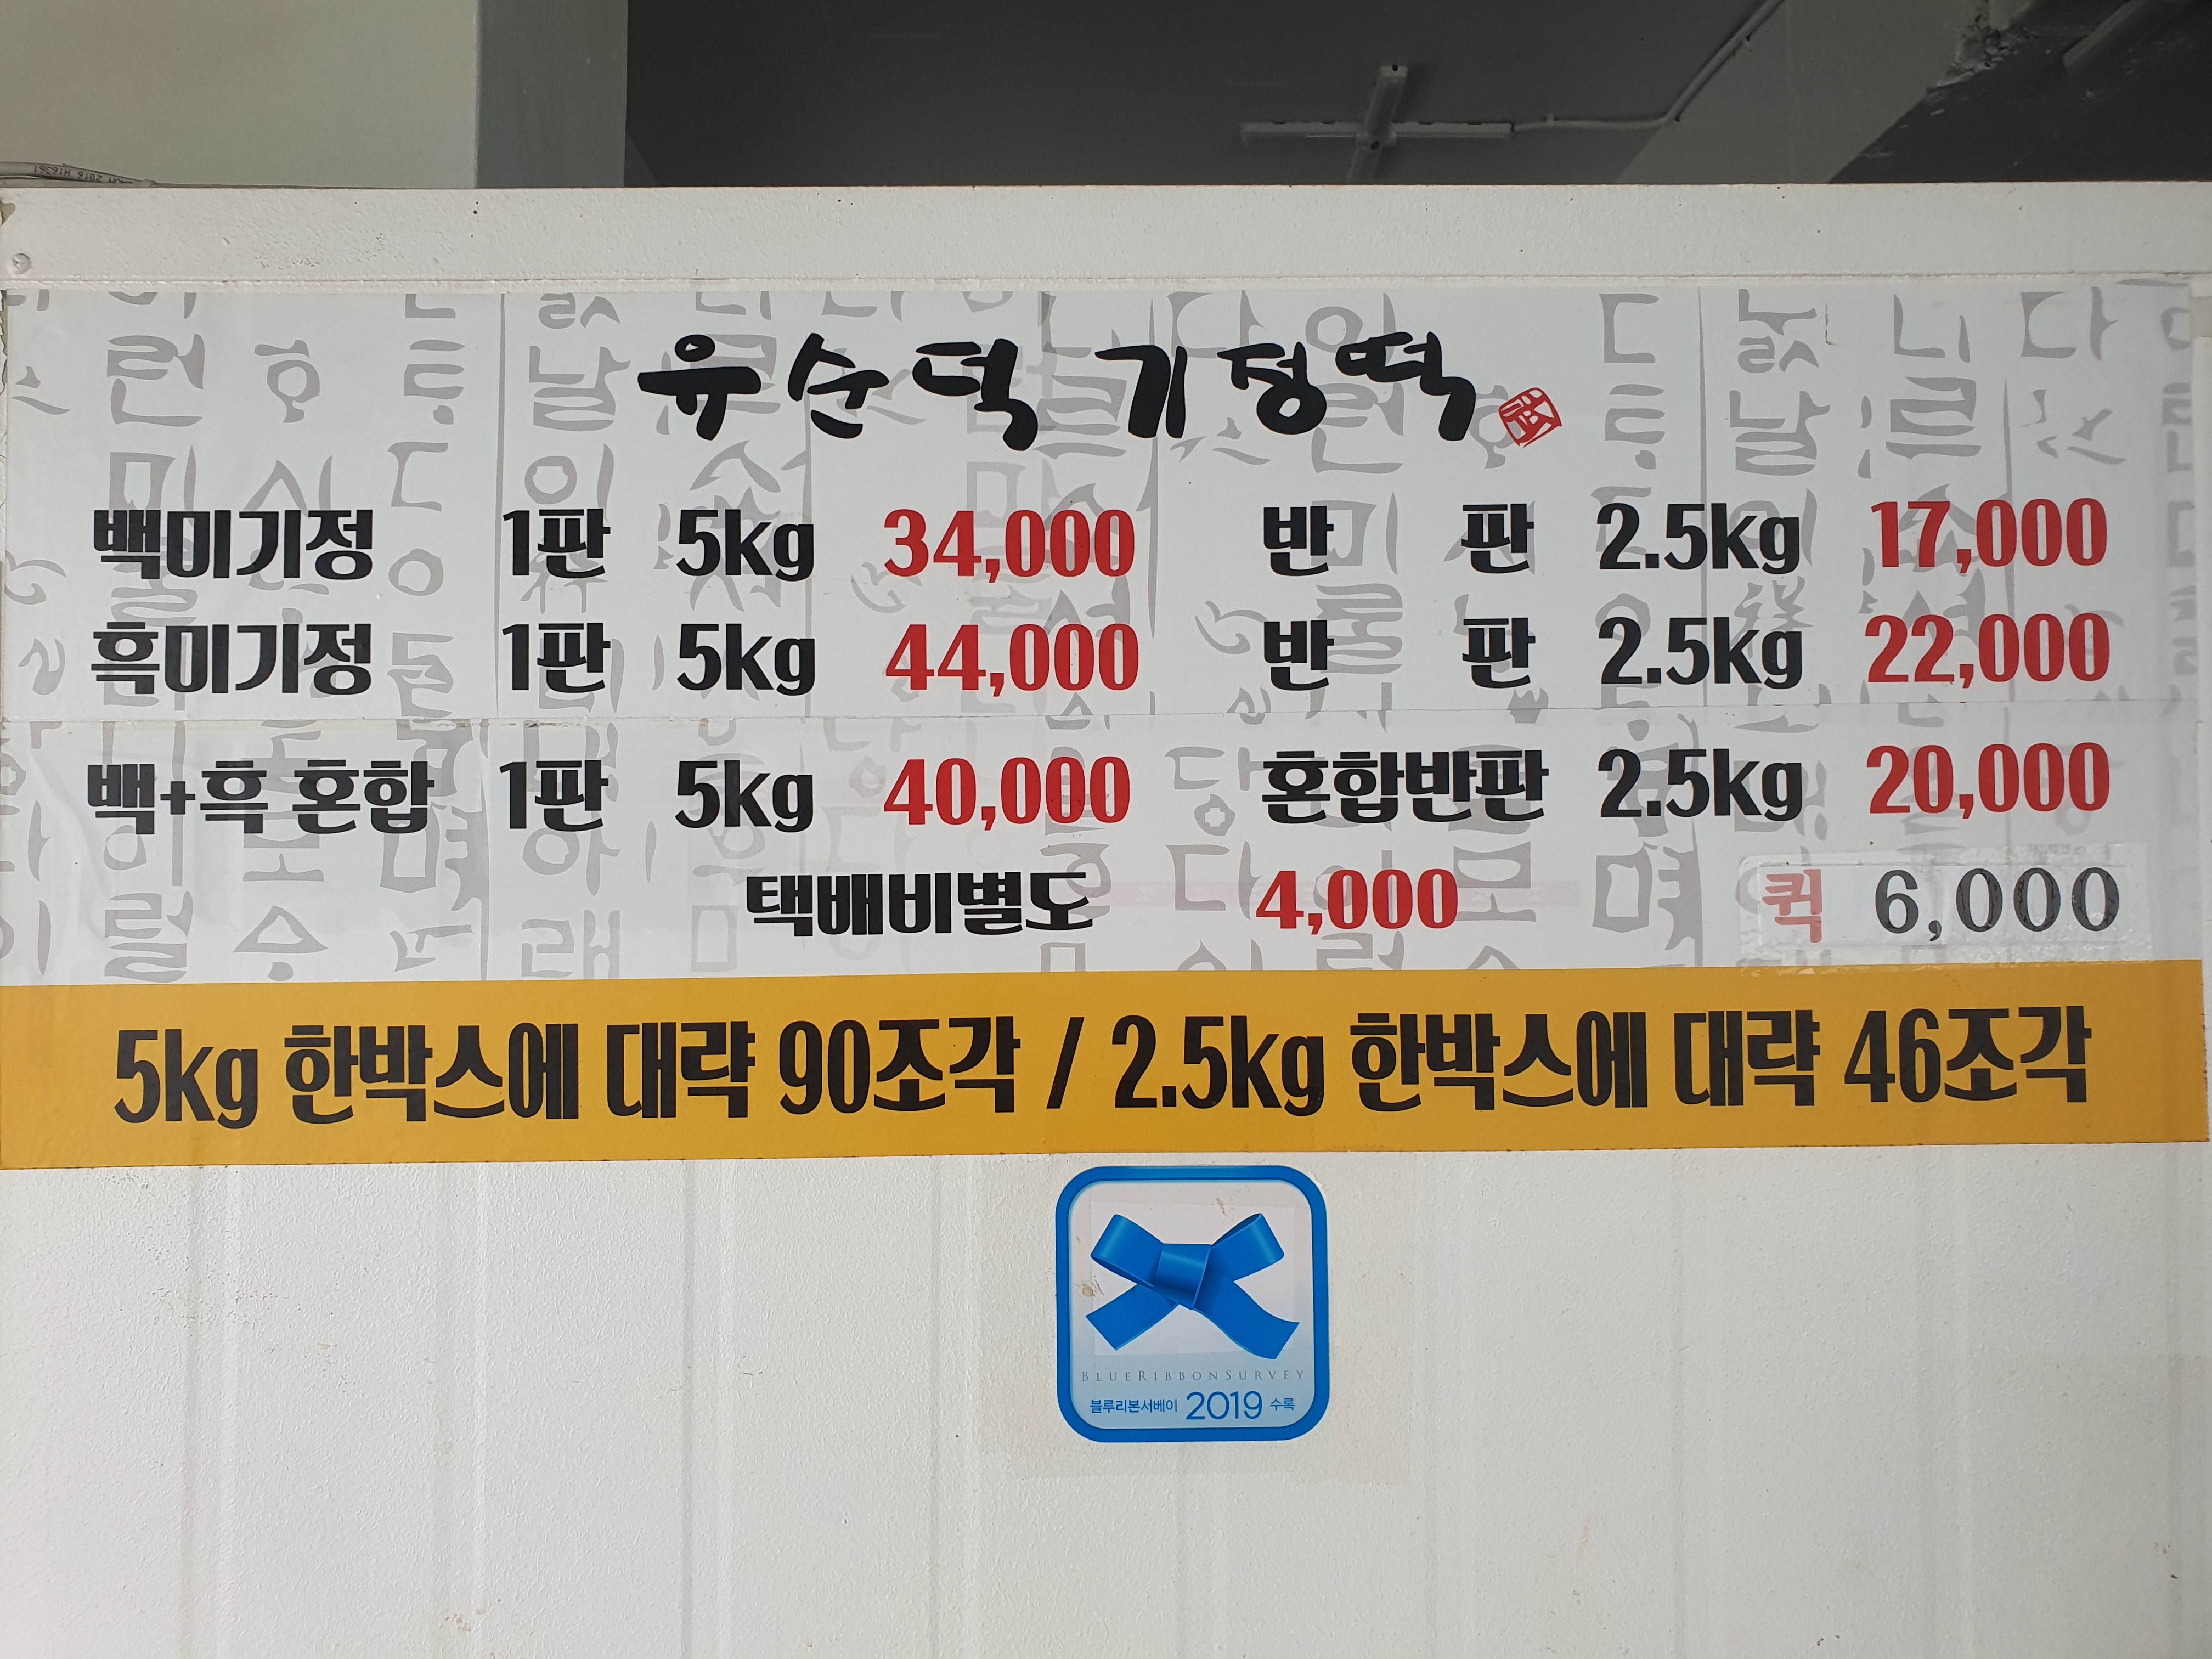 유순덕 기정떡
백미기정 1판 5kg 34,000 반 판 2.5kg 17,000
흑미기정 1판 5kg 44,000 반 판 2.5kg 22,000
백+흑 혼합 1판 5kg 40,000 혼합반판 2.5kg 20,000
택배비별도 4,000 퀵 6,000
5kg 한박스에 대략 90조각 / 2.5kg 한박스에 대략 46조각
BLUERIBBONSURVEY
블루리본서베이 2019 수록